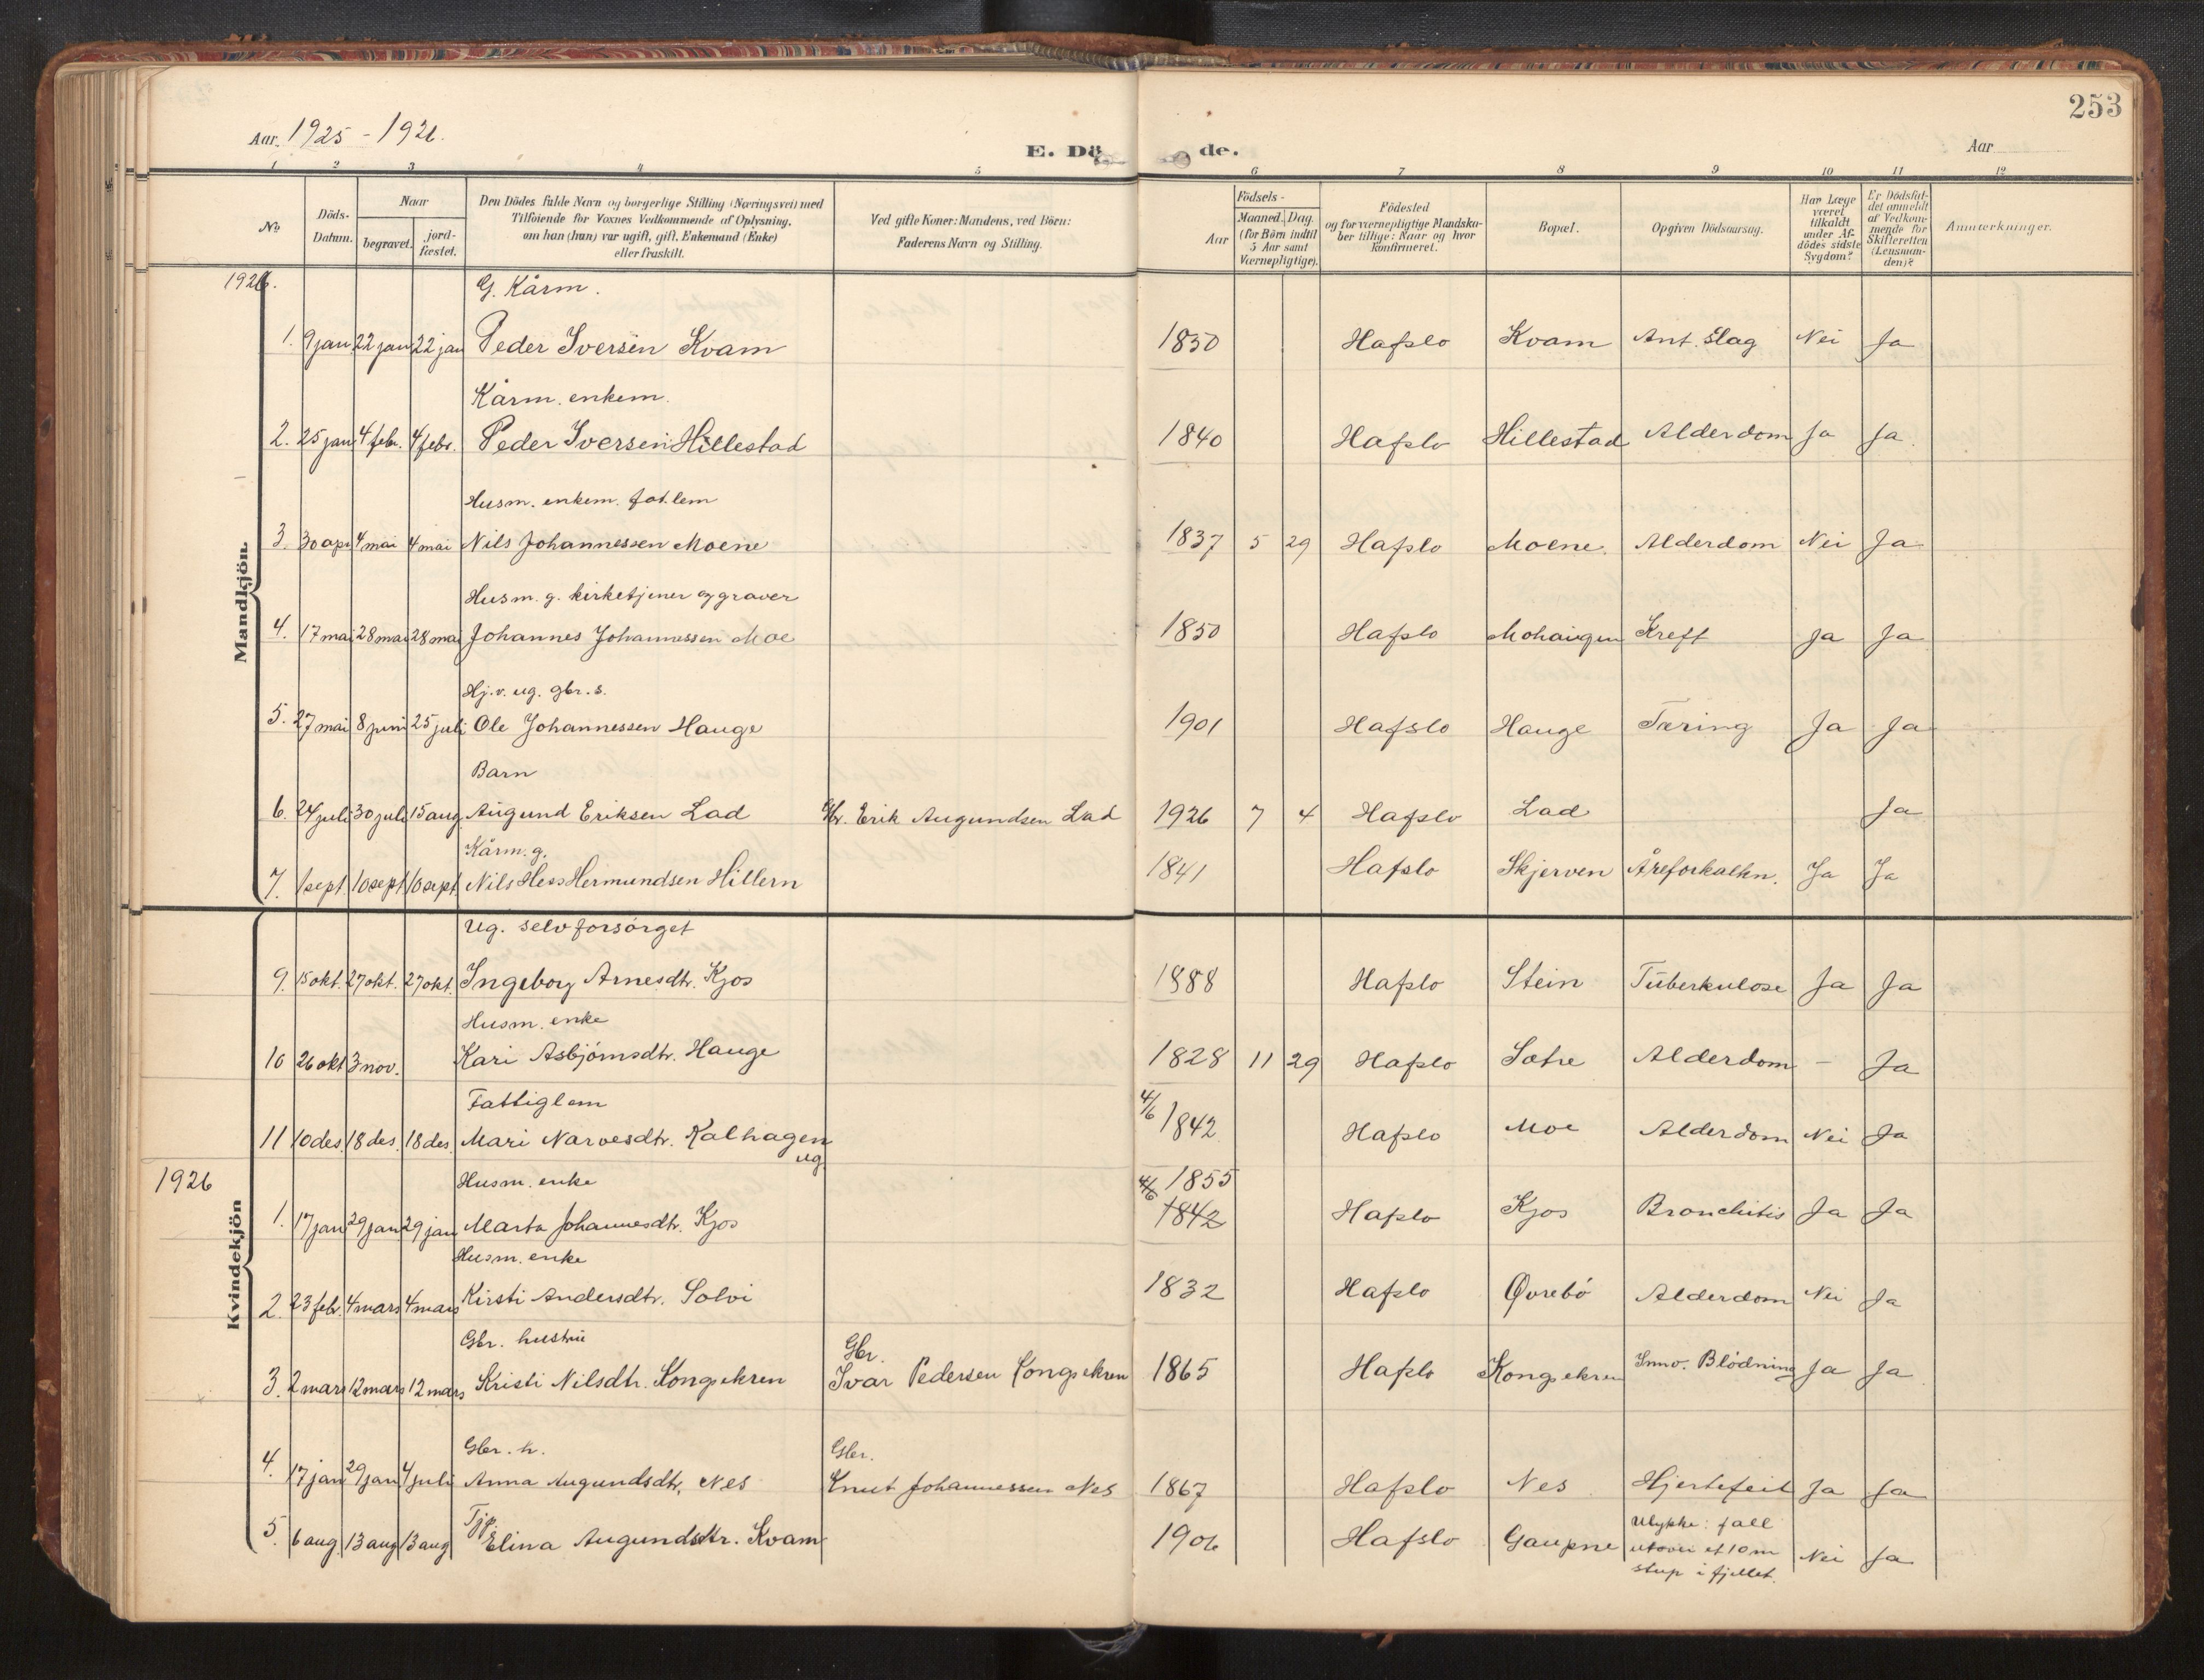 253
Aar 1925 - 1926.
E. Dö de.
Aar
1 2 3 4 5 6 7 8 9 10 11 12
No
Döds-Datum.
Naar
begravet.
jord-fæstet.
Den Dödes fulde Navn og borgerlige Stilling (Næringsvei) med
Tilföiende for Voxnes Vedkommende af Oplysning,
om han (hun) var ugift, gift, Enkemand (Enke)
eller fraskilt.
Ved gifte Koner: Mandens, ved Börn:
Faderens Navn og Stilling.
Födsels-
Aar
Maaned. Dag.
(for Börn indtil
5 Aar samt
Værnepligtige).
Födested
og for værnepligtige Mandska-
ber tillige: Naar og hvor
konfirmeret.
Bopæl.
Opgiven Dödsaarsag.
Har Læge
været
tilkaldt
under Af-
dödes sidste
Sygdom?
Er Dödsfal-
det anmeldt
af Vedkom-
mende for
Skifteretten
(Lensman-
den)?
Anmærkninger.
Mandkjön.
1926.
G. Kårm.
1. 9 jan 22 jan 22 jan Peder Iversen Kvam 1850 Hafslo Kvam Ant. slag Nei Ja
Kårm. enkem.
2. 25 jan 4 febr. 4 febr. Peder Iversen Hillestad 1840 Hafslo Hillestad Alderdom Ja Ja.
Husm. enkem. fat.lem
3. 30 apr 4 mai 4 mai Nils Johannessen Moene 1837 5 29 Hafslo Moene. Alderdom Nei Ja
Husm. g. kirketjener og graver
4. 17 mai 28 mai 28 mai Johannes Johannessen Moe 1850 Hafslo Mohaugen Kreft Ja Ja
Hj.v. ug. gbr. s.
5. 27 mai 8 juni 25 juli Ole Johannessen Hauge 1901 Hafslo Hauge Tæring Ja Ja
Barn
6. 24 juli 30 juli 15 aug. Augund Eriksen Lad Gbr. Erik Augundsen Lad 1926 7 4 Hafslo Lad Ja
Kårm. g.
7. 1 sept 10 sept 10 sept Nils Hess Hermundsen Hillern 1841 Hafslo Skjerven Åreforkalkn. Ja Ja
Kvindekjön
Ug. selvforsörget
9. 15 okt. 27 okt. 27 okt. Ingeborg Arnesdtr. Kjos 1888 Hafslo Stein Tuberkulose Ja Ja
Husm. enke
10 26 okt 3 nov. Kari Asbjörnsdtr. Hauge 1828 11 29 Hafslo Sætre Alderdom - Ja
Fattiglem
11 10 des 18 des. 18 des. Mari Narvesdtr. Kalhagen ug 4/6 1842 Hafslo Moe Alderdom Nei Ja
1926
Husm. enke
1855
1. 17 jan 29 jan 29 jan Marta Johannesdtr. Kjos 4/6 1842 Hafslo Kjos Bronchitis Ja Ja
Husm. enke
2. 23 febr. 4 mars 4 mars Kirsti Andersdtr. Solvi 1832 Hafslo Øvrebö Alderdom Nei Ja
Gbr. hustru Gbr.
3. 2 mars 12 mars 12 mars Kristi Nilsdtr. Kongsekren Ivar Pedersen Kongsekren 1865 Hafslo Kongsekren Innv. Blödning Ja Ja
Gbr. h. Gbr.
4. 17 jan 29 jan 4 juli Anna Augundsdtr. Nes Knut Johannessen Nes 1867 Hafslo Nes Hjertefeil Ja Ja
Tjp.
5. 6 aug. 13 aug 13 aug Elina Augundsdtr. Kvam 1906 Hafslo Gaupne Ulykke: fall
utover et 10 m Nei Ja
stup i fjellet.